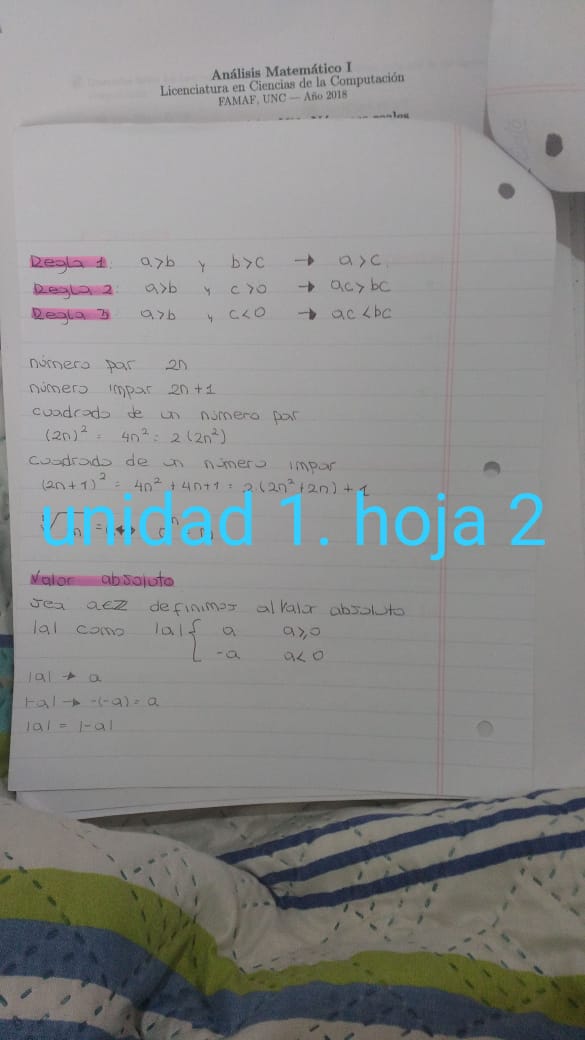 Análisis Matemático I
Licenciatura en Ciencias de la Computación
FAMAF, UNC — Año 2018
Regla 1: a>b y b>c → a>c
Regla 2: a>b y c>0 → ac>bc
Regla 3 a>b y c<0 → ac<bc
número par 2n
número impar 2n+1
cuadrado de un número par
(2n)² = 4n² = 2(2n²)
cuadrado de un número impar
(2n+1)² = 4n²+4n+1 = 2(2n²+2n)+1
unidad 1. hoja 2
Valor absoluto
sea a∈Z definimos al valor absoluto
|a| como |a| { a a≥0
-a a<0
|a| → a
|-a| → -(-a) = a
|a| = |-a|